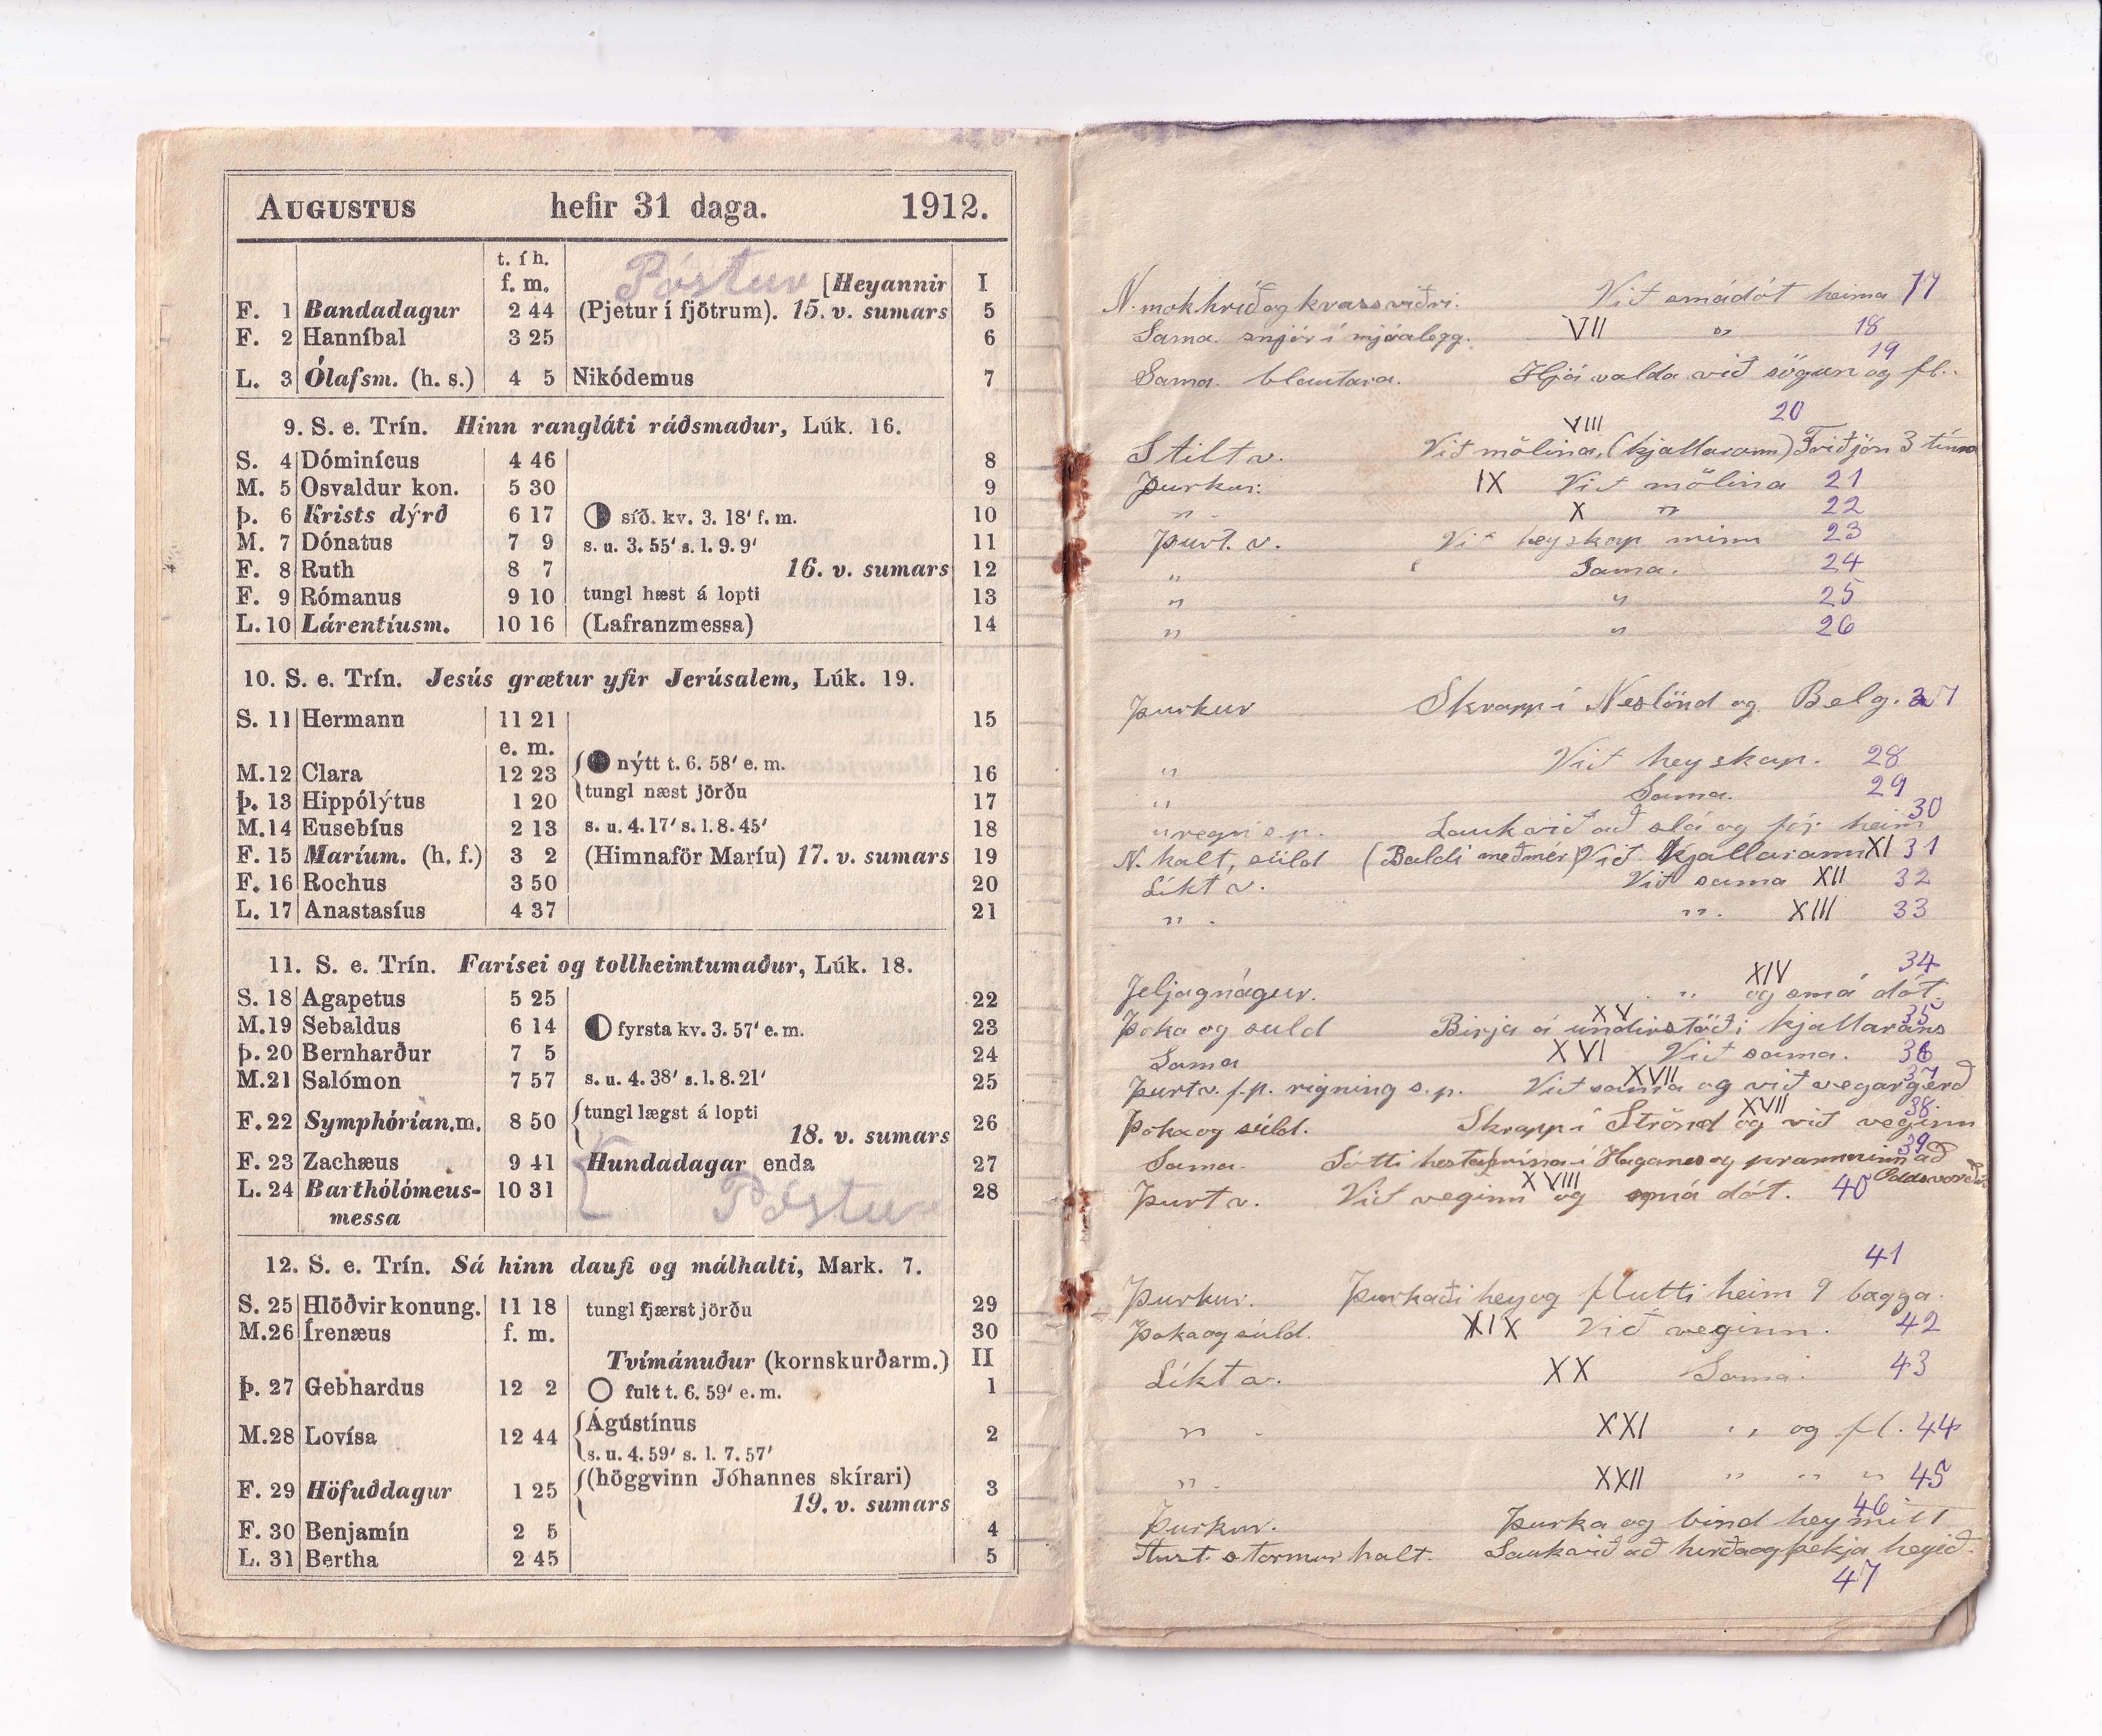 AUGUSTUS hefir 31 daga. 1912.
t. í h.
f. m. Póstur [Heyannir I
F. 1 Bandadagur 2 44 (Pjetur í fjötrum). 15. v. sumars 5
F. 2 Hanníbal 3 25 6
L. 3 Ólafsm. (h. s.) 4 5 Nikódemus 7
9. S. e. Trín. Hinn rangláti ráðsmaður, Lúk. 16.
S. 4 Dóminícus 4 46 8
M. 5 Osvaldur kon. 5 30 9
Þ. 6 Krists dýrð 6 17 síð. kv. 3. 18′ f. m. 10
M. 7 Dónatus 7 9 s. u. 3. 55′ s. l. 9. 9′ 11
F. 8 Ruth 8 7 16. v. sumars 12
F. 9 Rómanus 9 10 tungl hæst á lopti 13
L. 10 Lárentíusm. 10 16 (Lafranzmessa) 14
10. S. e. Trín. Jesús grætur yfir Jerúsalem, Lúk. 19.
S. 11 Hermann 11 21 15
e. m.
M. 12 Clara 12 23 nýtt t. 6. 58′ e. m. 16
Þ. 13 Hippólýtus 1 20 tungl næst jörðu 17
M. 14 Eusebíus 2 13 s. u. 4. 17′ s. l. 8. 45′ 18
F. 15 Maríum. (h. f.) 3 2 (Himnaför Maríu) 17. v. sumars 19
F. 16 Rochus 3 50 20
L. 17 Anastasíus 4 37 21
11. S. e. Trín. Farísei og tollheimtumaður, Lúk. 18.
S. 18 Agapetus 5 25 22
M. 19 Sebaldus 6 14 fyrsta kv. 3. 57′ e. m. 23
Þ. 20 Bernharður 7 5 24
M. 21 Salómon 7 57 s. u. 4. 38′ s. l. 8. 21′ 25
F. 22 Symphórían.m. 8 50 tungl lægst á lopti 26
18. v. sumars
F. 23 Zachæus 9 41 Hundadagar enda 27
L. 24 Barthólómeus- 10 31 Póstur 28
messa
12. S. e. Trín. Sá hinn daufi og málhalti, Mark. 7.
S. 25 Hlöðvir konung. 11 18 tungl fjærst jörðu 29
M. 26 Írenæus f. m. 30
Tvímánuður (kornskurðarm.) II
Þ. 27 Gebhardus 12 2 fult t. 6. 59′ e. m. 1
M. 28 Lovísa 12 44 Ágústínus 2
s. u. 4. 59′ s. l. 7. 57′
F. 29 Höfuðdagur 1 25 (höggvinn Jóhannes skírari) 3
19. v. sumars
F. 30 Benjamín 2 5 4
L. 31 Bertha 2 45 5
N. mokhríð og kvassviðri. Við smádót heima 17
Sama. snjór í mjóalegg. VII " 18
19
Sama. blautara. Hjá valda við sögun og fl.
VIII 20
Stilt v. Við mölina, (kjallarann) Friðjón 3 tíma
Þurkur. IX Við mölina 21
" X " 22
Þurt. v. Við heyskap minn 23
" Sama. 24
" " 25
" " 26
Þurkur Skrapp í Neslönd og Belg. 27
" Við heyskap. 28
" Sama. 29
30
" regn e.p. Lauk við að slá og fór heim
N. kalt, súld (Baldi með mér) Við kjallarann XI 31
Líkt v. Við sama XII 32
" " XIII 33
XIV 34
Jeljagnágur. " og smá dót.
XV 35
Þoka og suld Birja á undirstöði kjallarans
Sama XVI Við sama. 36
XVII 37
Þurt v. f.p. rigning s.p. Við sama og við vegargerð
XVII 38
Þoka og súld. Skrapp í Strönd og við veginn
39
Sama. Sótti í Haganes og að
XVIII
Þurt v. Við veginn og smá dót. 40
41
Þurkur. Þurkaði hey og flutti heim 9 bagga.
Þoka og súld. XIX Við veginn. 42
Líkt v. XX Sama. 43
" XXI " og fl. 44
" XXII " " " 45
46
Þurkur. Þurka og bind hey mitt
Þurt stormur kalt. Lauk við að hirða og þekja heyið.
47